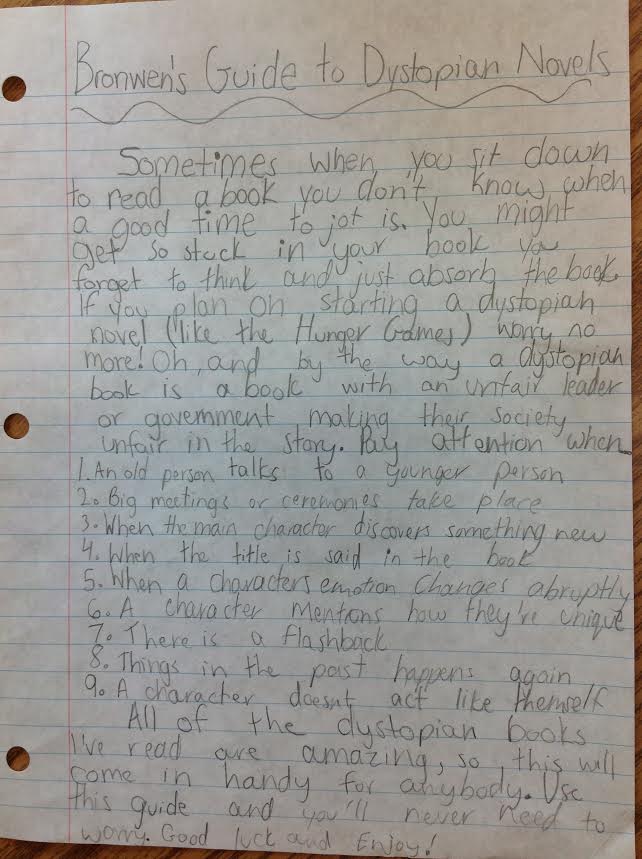 Bronwen's Guide to Dystopian Novels
Sometimes when you sit down
to read a book you don't know when
a good time to jot is. You might
get so stuck in your book you
forget to think and just absorb the book.
If you plan on starting a dystopian
novel (like the Hunger Games) worry no
more! Oh, and by the way a dystopian
book is a book with an unfair leader
or government making their society
unfair in the story. Pay attention when
1. An old person talks to a younger person
2. Big meetings or ceremonies take place
3. When the main character discovers something new
4. When the title is said in the book
5. When a characters emotion changes abruptly
6. A character mentions how they're unique
7. There is a flashback
8. Things in the past happens again
9. A character doesnt act like themself
All of the dystopian books
I've read are amazing, so this will
come in handy for anybody. Use
this guide and you'll never need to
worry. Good luck and Enjoy!